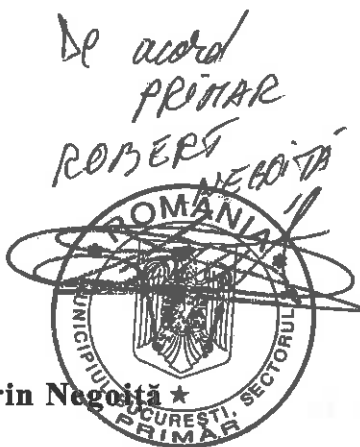 De acord
PRIMAR
ROBERT
NEGOIȚĂ
ROMÂNIA
MUNICIPIUL BUCUREȘTI, SECTORUL
PRIMAR
rin Negoiță